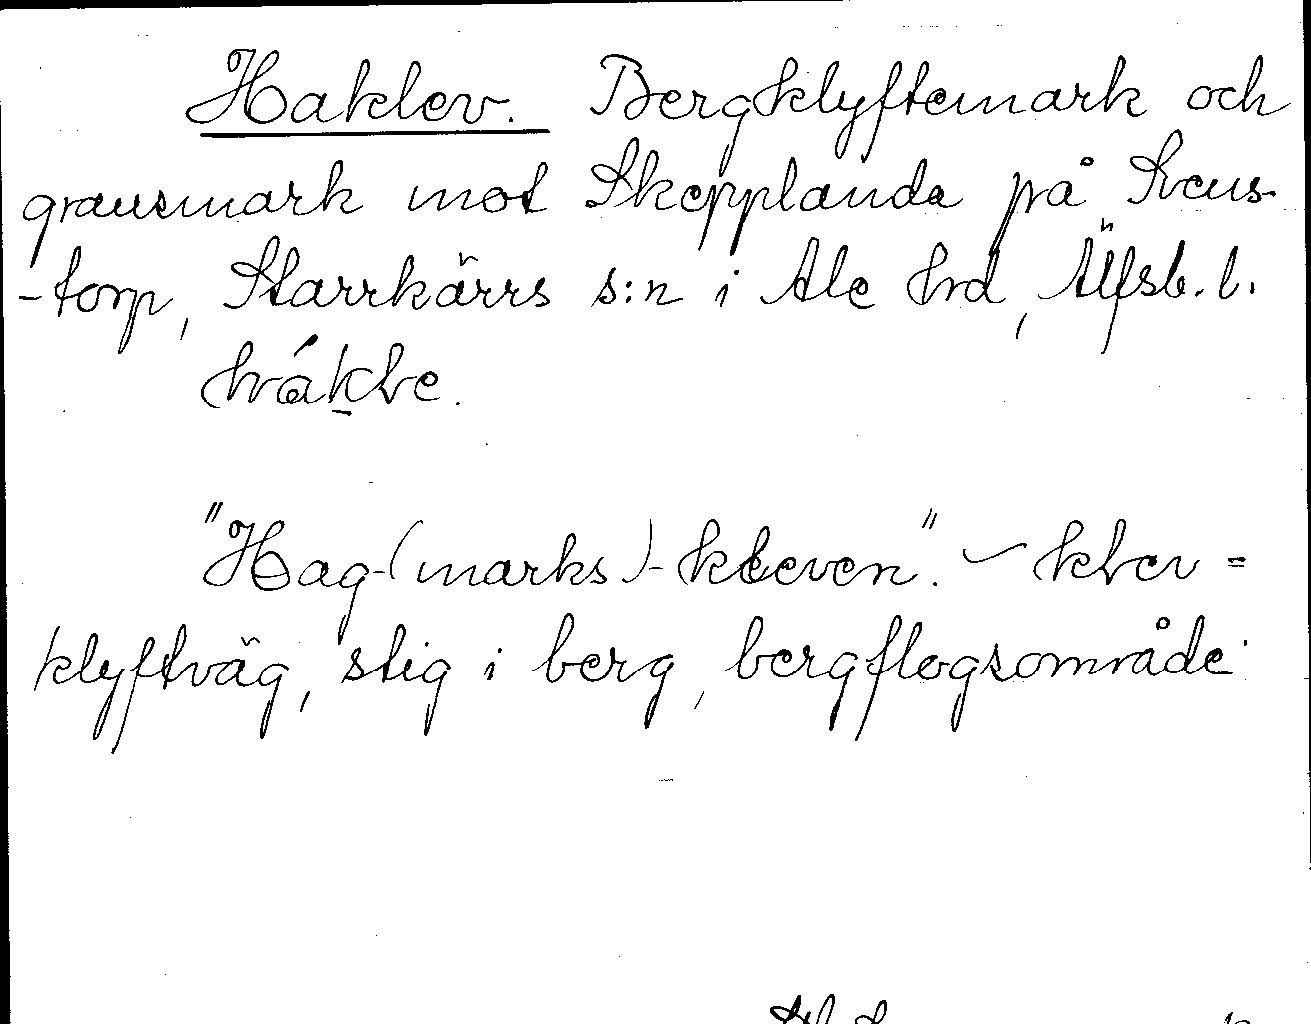 Haklev. Bergklyftemark och
gransmark mot Skepplanda på Svens-
-torp, Starrkärrs s:n i Ale hrd, Älfsb. l.
"Hag-(marks)-kleven". klev =
klyftväg, stig i berg, bergflogsområde